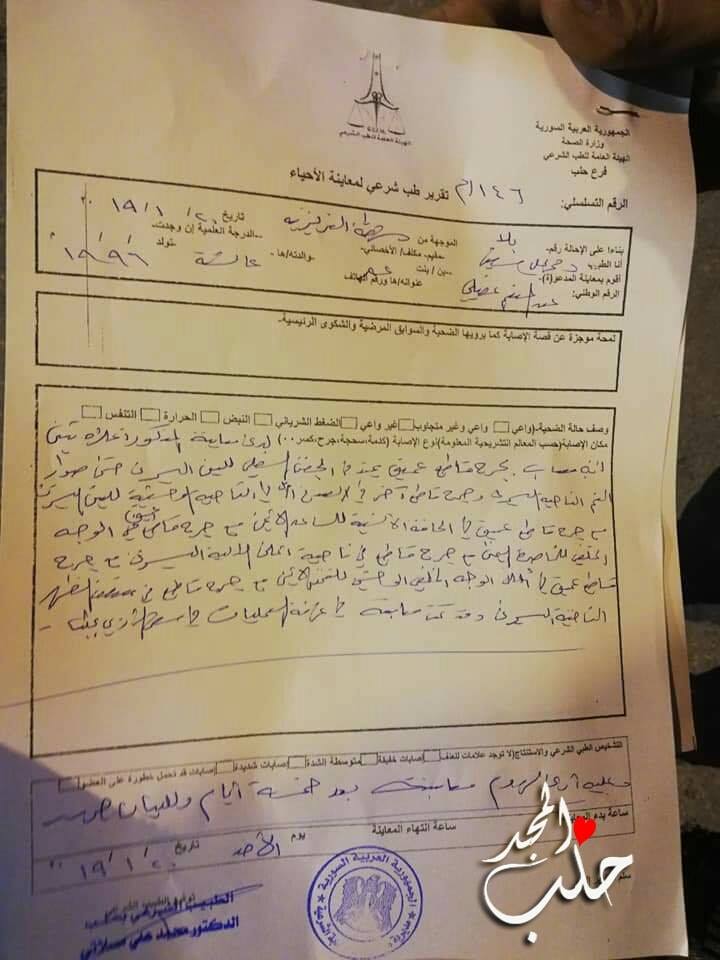 الهيئة العامة للطب الشرعي
الجمهورية العربية السورية
وزارة الصحة
الهيئة العامة للطب الشرعي
فرع حلب
الرقم التسلسلي: ١٤٦/م تقرير طب شرعي لمعاينة الأحياء
بناءا على الإحالة رقم- بلا الموجهة من العزيزية تاريخ ٢٠/١/١٩
أنا الطبيب د محمد علي مقيم- مكلف/ الأخصائي- --الدرجة العلمية إن وجدت-
أقوم بمعاينة المدعو(ة)- -بن/ بنت عمر والدته/ها- عائشة -تولد ١/١/١٩٩٦
الرقم الوطني: عنوانه/ها ورقم الهاتف
لمحة موجزة عن قصة الإصابة كما يرويها الضحية والسوابق المرضية والشكوى الرئيسية-
وصف حالة الضحية-(واعي واعي وغير متجاوب غير واعي الضغط الشرياني النبض الحرارة التنفس
مكان الإصابة(حسب المعالم التشريحية المعلومة)-نوع الإصابة (كدمة،سحجة،جرح،كسر٠٠) لدى معاينة المذكور أعلاه تبين
انه مصاب بجرح قاطع عميق يمتد في الجفن السفلي للعين اليسرى حتى صوار
الفم الناحية اليسرى وجرح قاطع آخر في الصدغ الناحية الوحشية للعين اليسرى
مع جرح قاطع عميق في الحافة الأنسية للساعد الأيمن مع جرح قاطع عميق في الوجه
الخلفي للخاصرة اليمنى مع جرح قاطع في ناحية اعلى الالية اليسرى مع جرح
قاطع عميق في أعلى الوجه الخلفي الوحشي للفخذ الأيمن مع جرح قاطع في الظهر
الناحية اليسرى وقد تمت معاينته في غرفة العمليات في مشفى الرازي بحلب -
التشخيص الطبي الشرعي والاستنتاج(لا توجد علامات للعنف إصابات خفيفة متوسطة الشدة إصابات شديدة إصابات قد تحمل خطورة على العضو
وعليه أرى لزوم معاينته بعد خمسة أيام وللبيان
ساعة بدء المعاينة ساعة انتهاء المعاينة يوم الأحد تاريخ ٢٠/١/١٩
الطبيب الشرعي بحلب
الدكتور محمد علي
الجمهورية العربية السورية
المجد
حلب